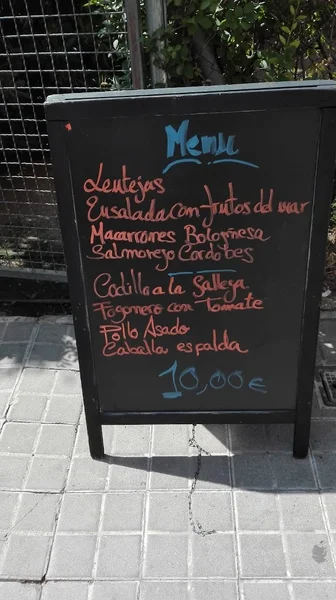 Menu
Lentejas
Ensalada con frutos del mar
Macarrones Bolognesa
Salmorejo Cordobes
Codillo a la Gallega
Fogonero con Tomate
Pollo Asado
Caballa espalda
10,00€